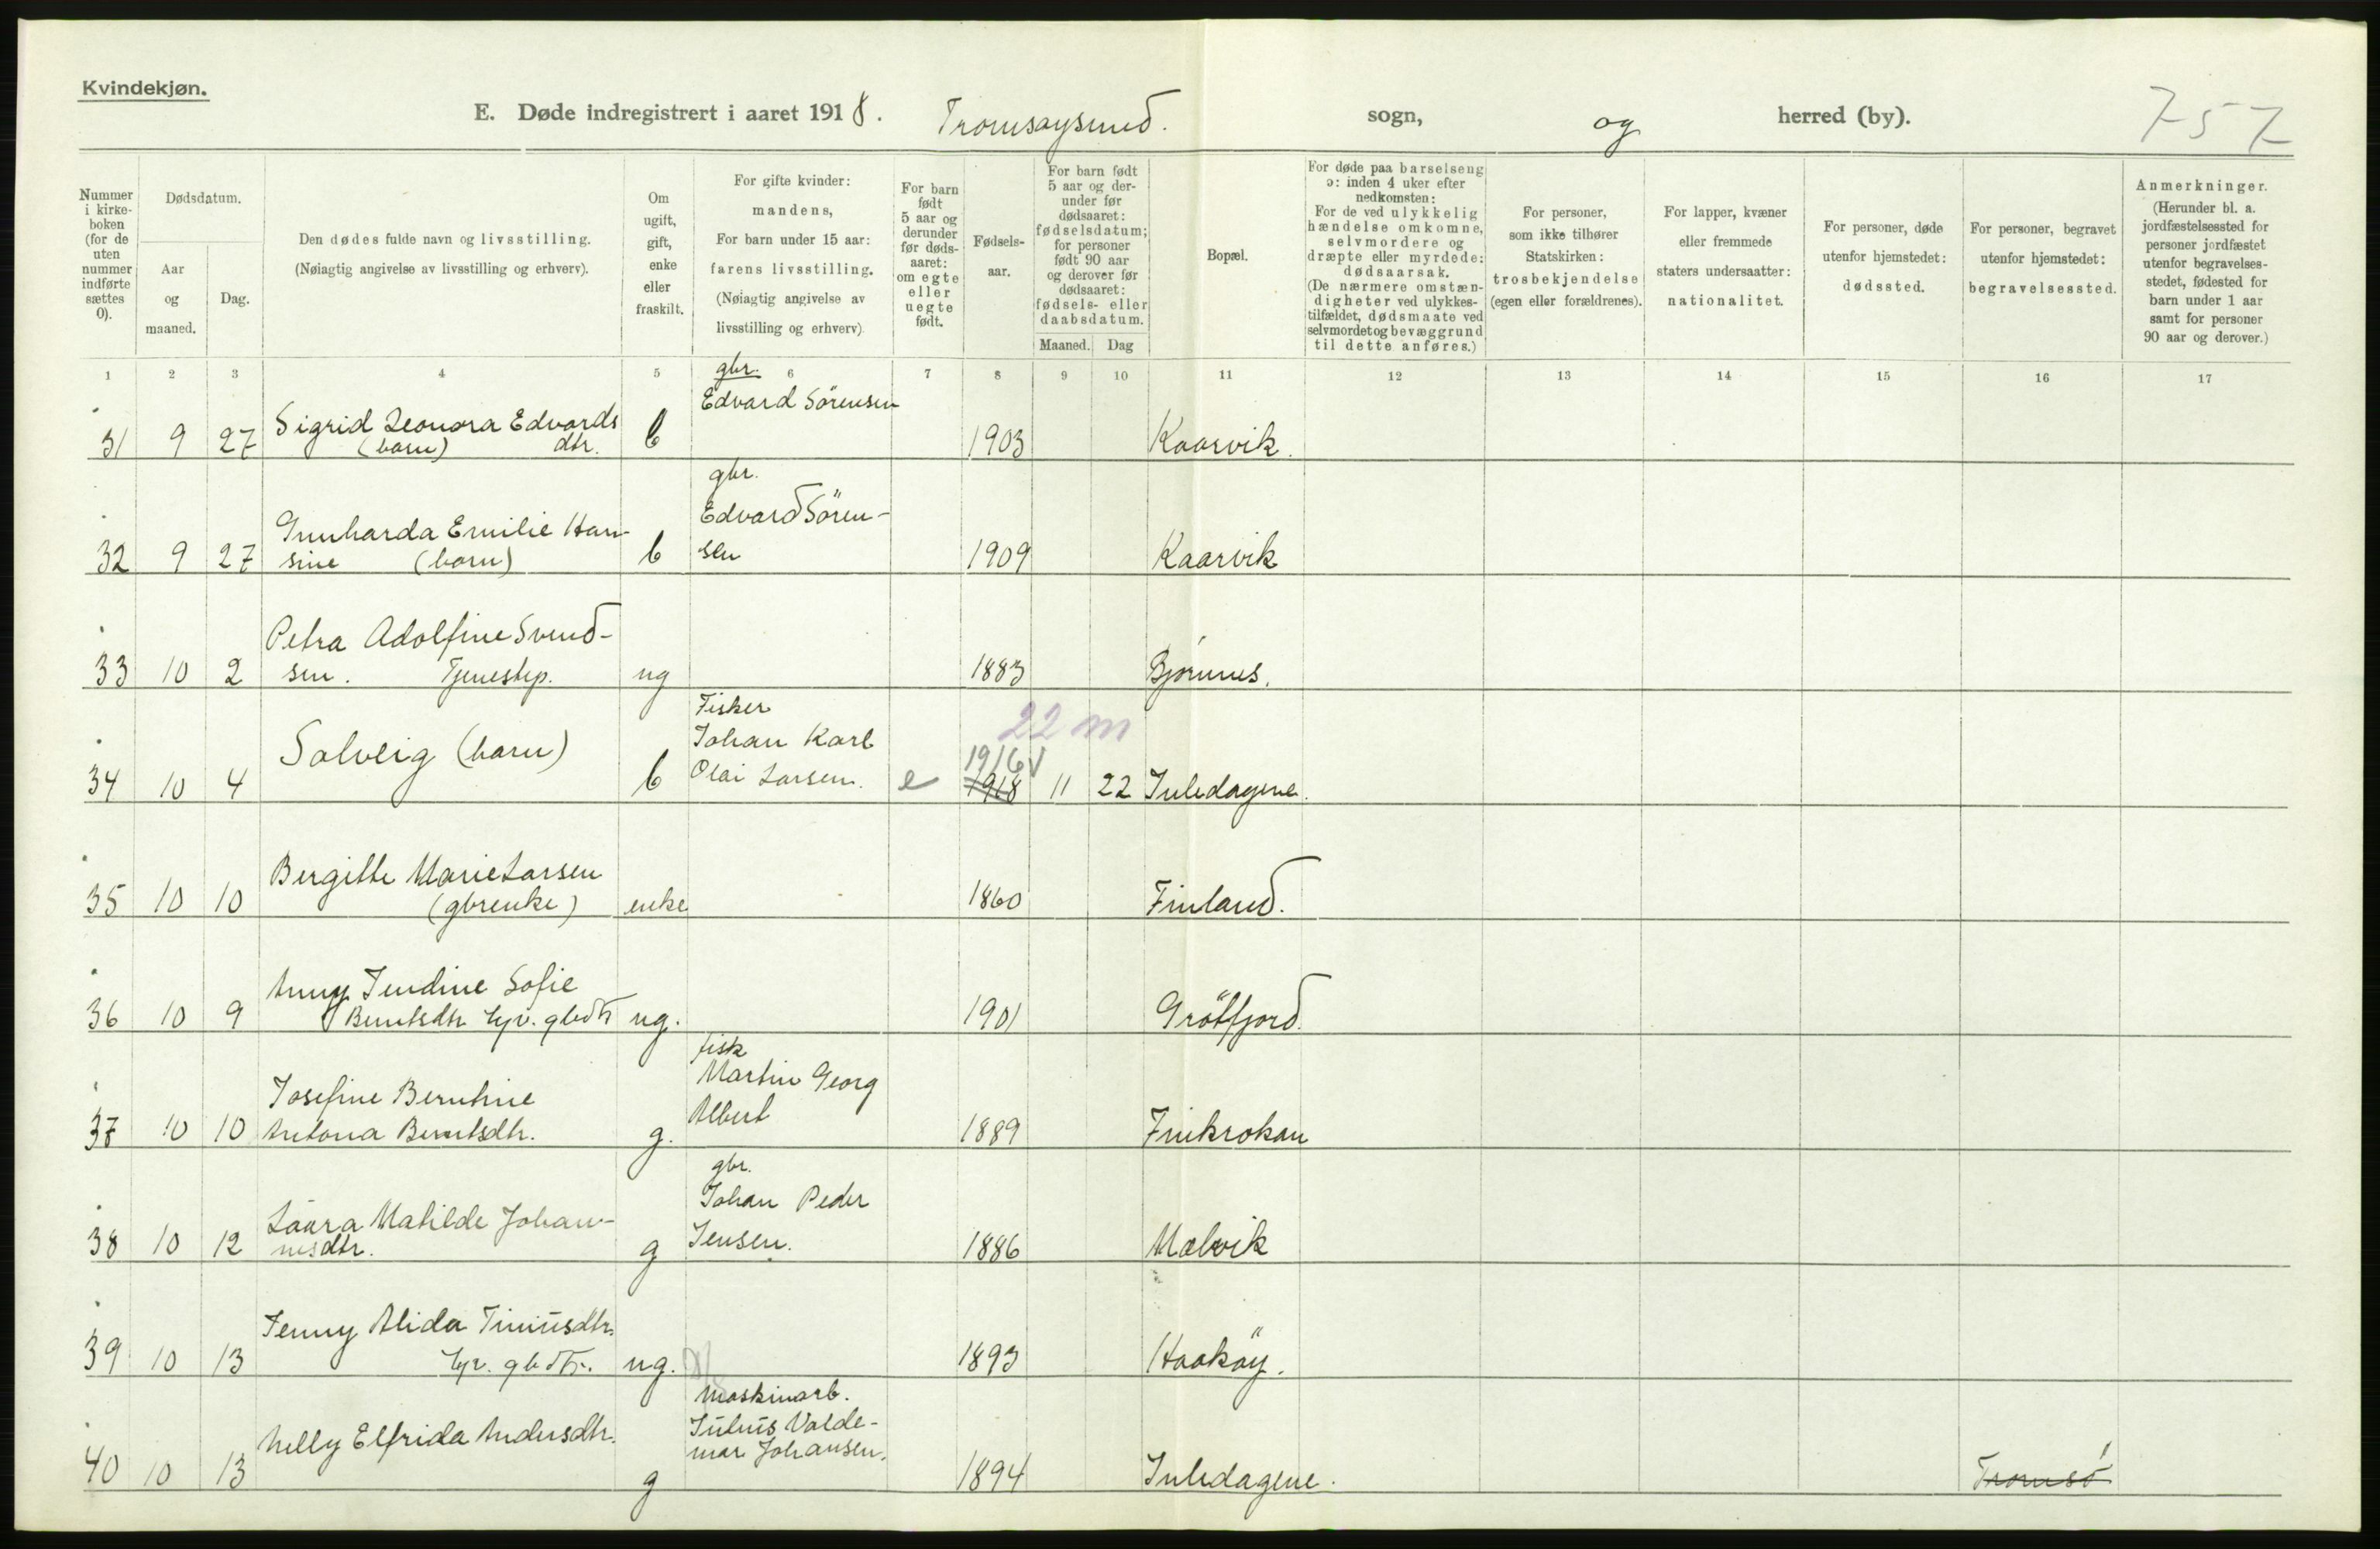 Kvindekjøn.
E. Døde indregistrert i aaret 1918. Tromsøysund. sogn, og herred (by). 757
Nummer i kirke-boken (for de uten nummer indførte sættes 0).
Dødsdatum.
Aar og maaned.
Dag.
Den dødes fulde navn og livsstilling.
(Nøiagtig angivelse av livsstilling og erhverv).
Om ugift, gift, enke eller fraskilt.
For gifte kvinder: mandens,
For barn under 15 aar: farens livsstilling.
(Nøiagtig angivelse av livsstilling og erhverv)
For barn født 5 aar og derunder før døds-aaret: om egte eller uegte født.
Fødsels-aar.
For barn født 5 aar og der-under før dødsaaret: fødselsdatum; for personer født 90 aar og derover før dødsaaret: fødsels- eller daabsdatum.
Maaned. Dag
Bopæl.
For døde paa barselseng ɔ: inden 4 uker efter nedkomsten:
For de ved ulykkelig hændelse omkomne, selvmordere og dræpte eller myrdede: dødsaarsak.
(De nærmere omstæn-digheter ved ulykkes-tilfældet, dødsmaate ved selvmordet og bevæggrund til dette anføres.)
For personer, som ikke tilhører Statskirken: trosbekjendelse (egen eller forældrenes).
For lapper, kvæner eller fremmede staters undersaatter: nationalitet.
For personer, døde utenfor hjemstedet: dødssted.
For personer, begravet utenfor hjemstedet: begravelsessted.
Anmerkninger.
(Herunder bl. a. jordfæstelsessted for personer jordfæstet utenfor begravelses-stedet, fødested for barn under 1 aar samt for personer 90 aar og derover.)
1 2 3 4 5 6 7 8 9 10 11 12 13 14 15 16 17
gbr.
Edvard Sörensen
31 9 27 Sigrid Leonora Edvards b 1903 Kaarvik.
(barn) dtr.
gbr.
Edvard Sören-
Gunharda Emilie Han-
32 9 27 sine (barn) b sen 1909 Kaarvik
Petra Adolfine Svend-
33 10 2 sen. Tjenestep. ug 1883 Bjørnnes.
Fisker 22 m
Solveig (barn) Johan Karl 1916
34 10 4 b Olai Larsen. e 1918 11 22 Juledagene.
Bergitte Marie Larsen
35 10 10 (gbrenke) enke 1860 Finland.
Anny Jendine Sofie
36 10 9 Berntsdtr hjv. gbdtr ug. 1901 Grötfjord.
fisk
Josefine Berntine Martin Georg
37 10 10 Antona Berntsdtr. g. Albert 1889 Finkroken
gbr.
Laura Matilde Johan- Johan Peder
38 10 12 nesdtr. g Jensen. 1886 Mælvik
Jenny Alida Tiniusdtr.
39 10 13 hjv. gbdtr. ug. 1893 Haaköy.
Maskinarb.
Nelly Elfrida Andersdtr. Julius Valde-
mar Johansen.
40 10 13 g 1894 Juledagene. Tromsö